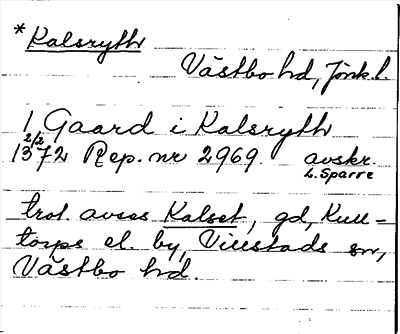 *Kalsryth
Västbo hd, Jönk.l.
1 Gaard i Kalsryth
2/2
1372 Rep. nr 2969. avskr.
L. Sparre
trol. avses Kalset, gd, Kull-
torps el. by, Villstads sn,
Västbo hd.